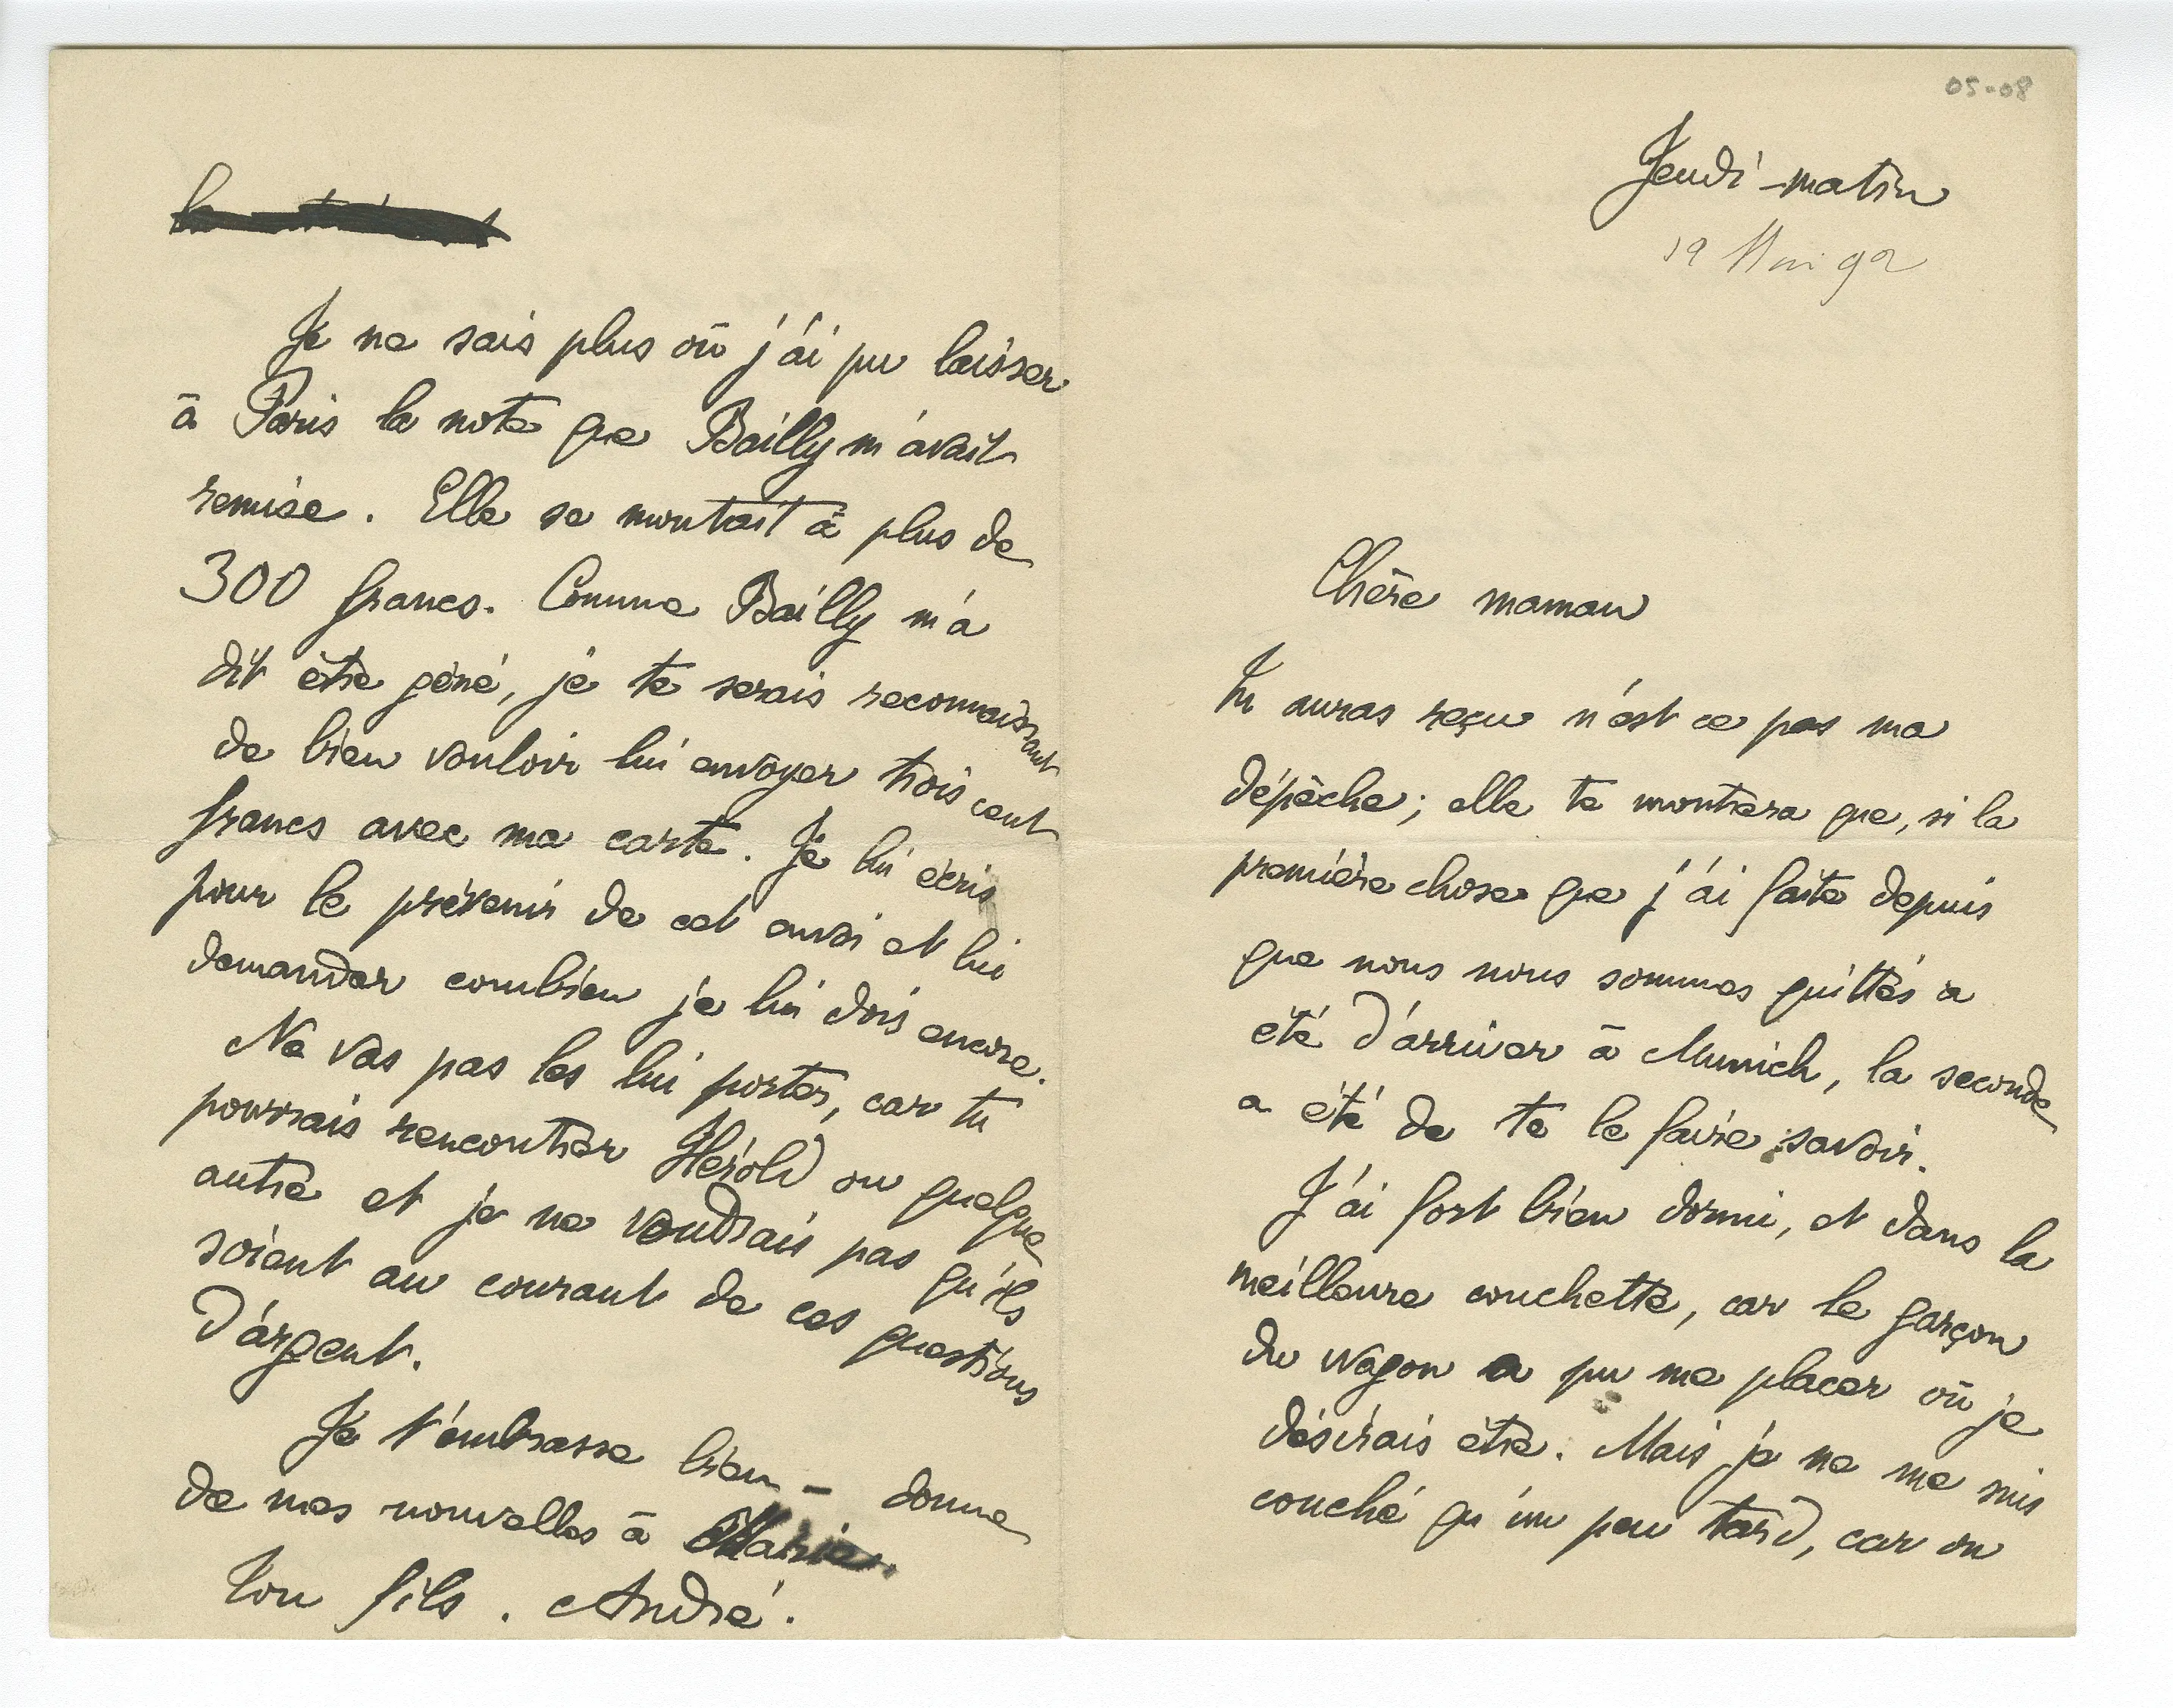 05-08
Jeudi matin
19 Mai 92
Chère maman
Tu auras reçu n'est ce pas ma
dépêche ; elle te montrera que, si la
première chose que j'ai faite depuis
que nous nous sommes quittés a
été d'arriver à Munich, la seconde
a été de te le faire savoir.
J'ai fort bien dormi, et dans la
meilleure couchette, car le garçon
du wagon a pu me placer où je
désirais être. Mais je ne me suis
couché qu'un peu tard, car on
Je ne sais plus où j'ai pu laisser
à Paris la note que Bailly m'avait
remise. Elle se montait à plus de
300 francs. Comme Bailly m'a
dit être gêné, je te serais reconnaissant
de bien vouloir lui envoyer trois cent
francs avec ma carte. Je lui écris
pour le prévenir de cet envoi et lui
demander combien je lui dois encore.
Ne vas pas les lui porter, car tu
pourrais rencontrer Hérold ou quelque
autre et je ne voudrais pas qu'ils
soient au courant de ces questions
d'argent.
Je t'embrasse bien – donne
de mes nouvelles à Marie.
Ton fils. André.